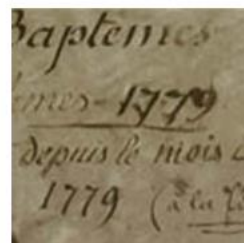 Baptemes
emes - 1779
depuis le mois
1779 (a la